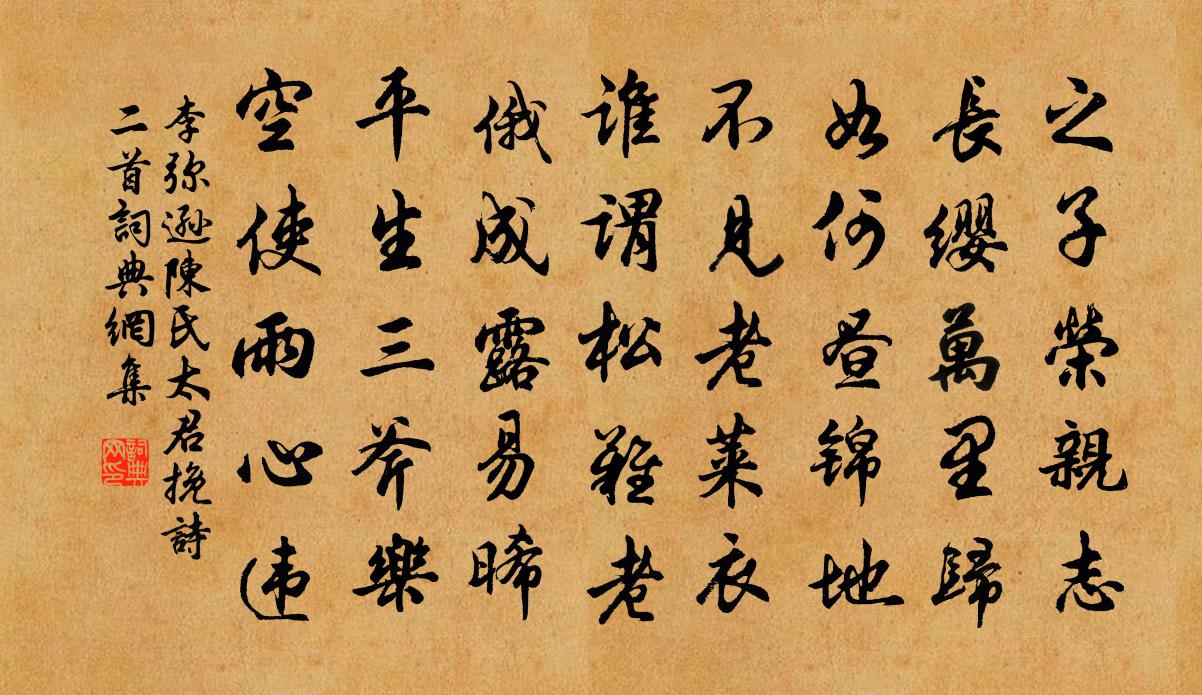 之子榮親志
長纓萬里歸
如何昼錦地
不見老萊衣
誰謂松難老
俄成露易晞
平生三斧樂
空使兩心违
李弥遜陳氏太君挽詩
二首詞典網集
詞典
网印